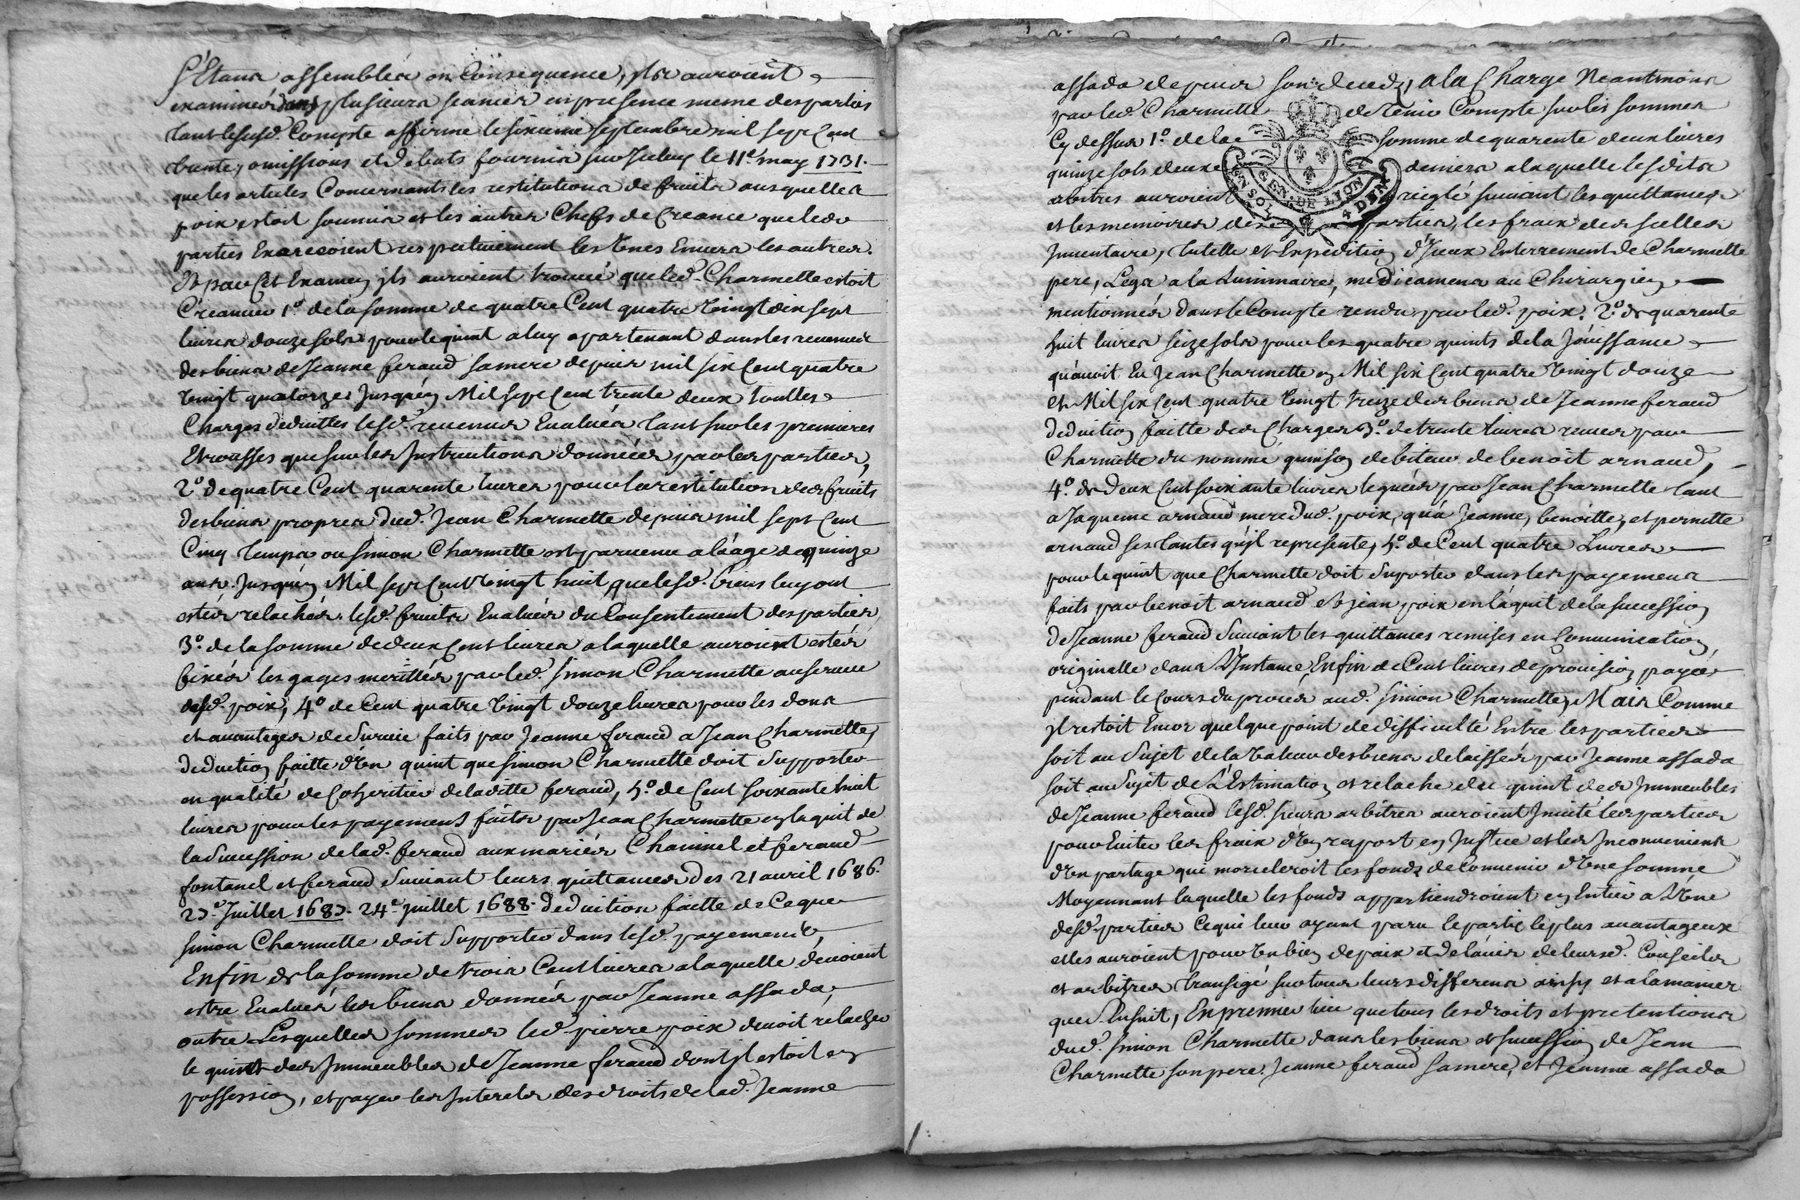 S'Etant assemblés en Consequence, ils auroient
examinés dans plusieurs seances en presence meme des parties
tant lesusd. Compte affirmé le sixieme septembre mil sept Cent
trente, omissions et debats fournis sur iceluy le 11e. may 1731.
que les articles Concernants les restitutions de fruits ausquelles
poix estoit soumis et les autres Chefs de Creance que lesd.
parties Exercoient respectivement les Unes Envers les autres.
Et par Cet Examen ils auroient trouvé que led. Charmette estoit
Creancier 1o. de la somme de quatre Cent quatre Vingt dix sept
livres douze sols pour le quint a luy apartenant dans les revenus
des biens de Jeanne feraud sa mere depuis mil six Cent quatre
Vingt quatorze Jusqu'en Mil sept Cent trente deux touttes
Charges deduittes lesd. revenus Evalués tant sur les premieres
Etrousses que sur les Instructions données par les parties,
2o. de quatre Cent quarente livres pour la restitution des fruits
des biens propres dud. Jean Charmette depuis mil sept Cent
Cinq temps ou simon Charmette est parvenu a l'âge de quinze
ans. Jusqu'en Mil sept Cent Vingt huit que lesd. biens luy ont
estés relachés. lesd. fruits Evalués du Consentement des parties,
3o. de la somme de deux Cent livres a laquelle auroient estés
fixés les gages merittés par led. simon Charmette au service
dud. poix, 4o. de Cent quatre Vingt douze livres pour les dons
et avantages de survie faits par Jeanne feraud a Jean Charmette,
deduction faitte d'Un quint que simon Charmette doit supporter
en qualité de Coheritier de laditte feraud, 5o. de Cent soixante huit
livres pour les payements faits par Jean Charmette en l'aquit de
la succession de lad. feraud aux mariés Chaninel et feraud
fontanel et feraud suivant leurs quittances des 21 avril 1686.
25e. Juillet 1687. 24e. Juillet 1688. deduction faitte de Ce que
simon Charmette doit supporter dans lesd. payements
Enfin de la somme de trois Cent livres a laquelle devoient
estre Evalués les biens donnés par Jeanne assada,
outre Lesquelles sommes led. pierre poix devoit relacher
le quint des Immeubles de Jeanne feraud dont il estoit en
possession, et payer les Interets des droits de lad. Jeanne
assada depuis son deceds, a la Charge Neantmoins
par led. Charmette de tenir Compte sur les sommes
Cy dessus 1o. de la somme de quarente deux livres
quinze sols deux deniers a laquelle lesdits
arbitres auroient reiglé suivant les quittances
et les memoires des parties, les fraix des scelles
Inventaire, tutelle et Expedition d'Iceux Enterrement de Charmette
pere, Legs a la Luminaire, medicamens au Chirurgien
mentionnés dans le Compte rendu par led. poix. 2o. de quarente
huit livres seize sols pour les quatre quints de la Jouissance
qu'avoit Eu Jean Charmette en Mil six Cent quatre Vingt douze
et Mil six Cent quatre Vingt treize des biens de Jeanne feraud
deduction faitte des Charges 3o. de trente livres receus par
Charmette du nommé quinson debiteur de benoit arnaud,
4o. de deux Cent soixante livres legués par Jean Charmette tant
a Jaqueme arnaud mere dud. poix, qu'a Jeanne, benoitte, et pernette
arnaud ses tantes qu'il represente, 5o. de Cent quatre Livres
pour le quint que Charmette doit suporter dans les payemens
faits par benoit arnaud et jean poix en l'aquit de la succession
de Jeanne feraud suivant les quittances remises en Communication
originalle dans L'Instance, Enfin de Cent livres de provision payés
pendant le Cours du procés aud. simon Charmette, Mais Comme
il restoit Encor quelque point de difficulté Entre les parties
soit au sujet de la Valeur des biens delaissés par Jeanne assada
soit au sujet de L'Estimation et relache du quint des Immeubles
de Jeanne feraud lesd. sieurs arbitres auroient Invité les parties
pour Eviter les fraix d'Un raport en Justice et les Inconveniens
d'Un partage qui morceleroit les fonds de Convenir d'Une somme
Moyennant laquelle les fonds appartiendroient en Entier a L'Une
desd. parties Ce qui leur ayant paru le parti le plus avantageux
elles auroient pour Un bien de paix et de l'avis de leursd. Conseils
et arbitres transigé sur tous leurs differens ainsy et a la maniere
que s'Ensuit, En premier lieu que tous les droits et pretentions
dud. simon Charmette dans les biens et succession de Jean
Charmette son pere. Jeanne feraud sa mere, et Jeanne assada
GEN. DE LYON
4 DEN